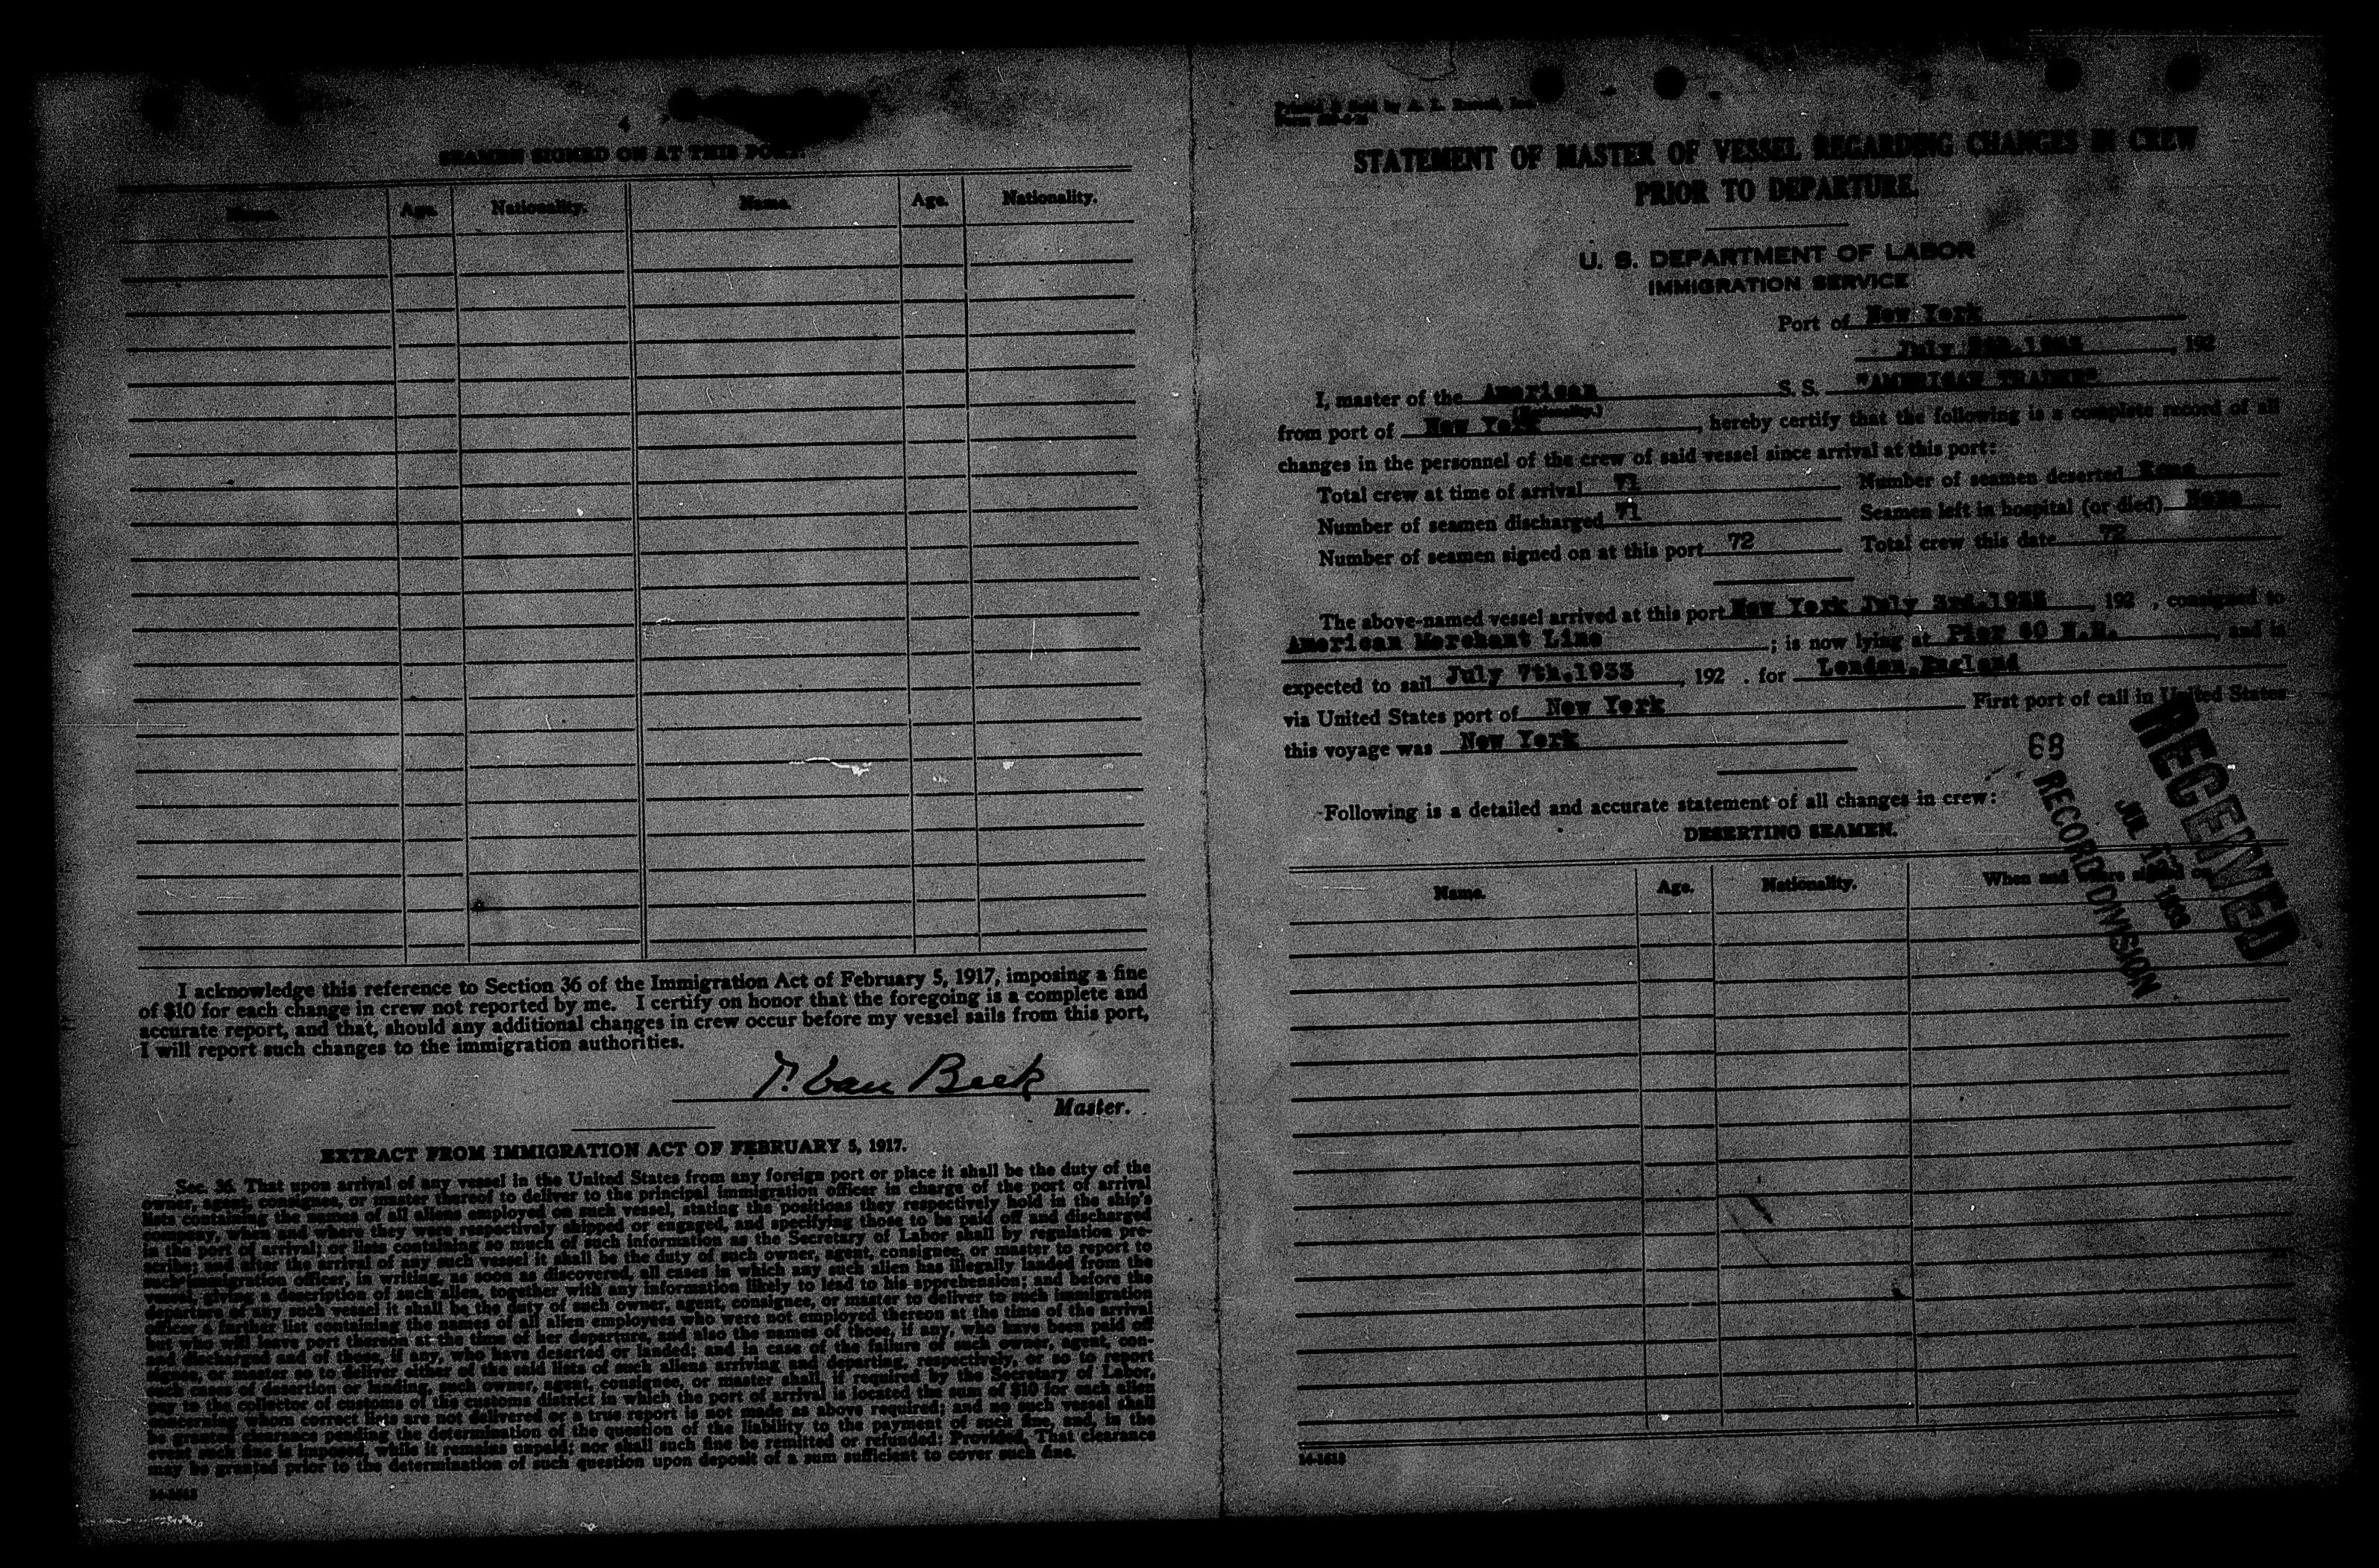 4
SEAMEN SIGNED ON AT THIS PORT.
Name. Age. Nationality. Name. Age. Nationality.
I acknowledge this reference to Section 36 of the Immigration Act of February 5, 1917, imposing a fine
of $10 for each change in crew not reported by me. I certify on honor that the foregoing is a complete and
accurate report, and that, should any additional changes in crew occur before my vessel sails from this port,
I will report such changes to the immigration authorities.
T. Van Beek
Master.
EXTRACT FROM IMMIGRATION ACT OF FEBRUARY 5, 1917.
Sec. 36. That upon arrival of any vessel in the United States from any foreign port or place it shall be the duty of the
owner, agent, consignee, or master thereof to deliver to the principal immigration officer in charge of the port of arrival
lists containing the names of all aliens employed on such vessel, stating the positions they respectively hold in the ship's
company, when and where they were respectively shipped or engaged, and specifying those to be paid off and discharged
in the port of arrival; or lists containing so much of such information as the Secretary of Labor shall by regulation pre-
scribe; and after the arrival of any such vessel it shall be the duty of such owner, agent, consignee, or master to report to
such immigration officer, in writing, as soon as discovered, all cases in which any such alien has illegally landed from the
vessel, giving a description of such alien, together with any information likely to lead to his apprehension; and before the
departure of any such vessel it shall be the duty of such owner, agent, consignee, or master to deliver to such immigration
officer a further list containing the names of all alien employees who were not employed thereon at the time of the arrival
but who will leave port thereon at the time of her departure, and also the names of those, if any, who have been paid off
and discharged and of those, if any, who have deserted or landed; and in case of the failure of such owner, agent, con-
signee, or master so to deliver either of the said lists of such aliens arriving and departing, respectively, or so to report
such cases of desertion or landing, such owner, agent, consignee, or master shall, if required by the Secretary of Labor,
pay to the collector of customs of the customs district in which the port of arrival is located the sum of $10 for each alien
concerning whom correct lists are not delivered or a true report is not made as above required; and no such vessel shall
be granted clearance pending the determination of the question of the liability to the payment of such fine, and, in the
event such fine is imposed, while it remains unpaid; nor shall such fine be remitted or refunded: Provided, That clearance
may be granted prior to the determination of such question upon deposit of a sum sufficient to cover such fine.
14-1613
Printed & Sold by A. L. Russell, Inc.
Form
STATEMENT OF MASTER OF VESSEL REGARDING CHANGES IN CREW
PRIOR TO DEPARTURE.
U. S. DEPARTMENT OF LABOR
IMMIGRATION SERVICE
Port of New York
July 192
I, master of the American S. S. "AMERICAN TRADER"
(Nationality.)
from port of New York, hereby certify that the following is a complete record of all
changes in the personnel of the crew of said vessel since arrival at this port:
Total crew at time of arrival 71 Number of seamen deserted None
Number of seamen discharged 71 Seamen left in hospital (or died) None
Number of seamen signed on at this port 72 Total crew this date 72
The above-named vessel arrived at this port New York July 3rd,1933, 192 , consigned to
American Merchant Line; is now lying at Pier 60 N.R., and is
expected to sail July 7th,1933, 192 . for London,England
via United States port of New York First port of call in United States
this voyage was New York
68
RECEIVED
JUL 1933
RECORD DIVISION
Following is a detailed and accurate statement of all changes in crew:
DESERTING SEAMEN.
Name. Age. Nationality. When and where signed on
14-1613